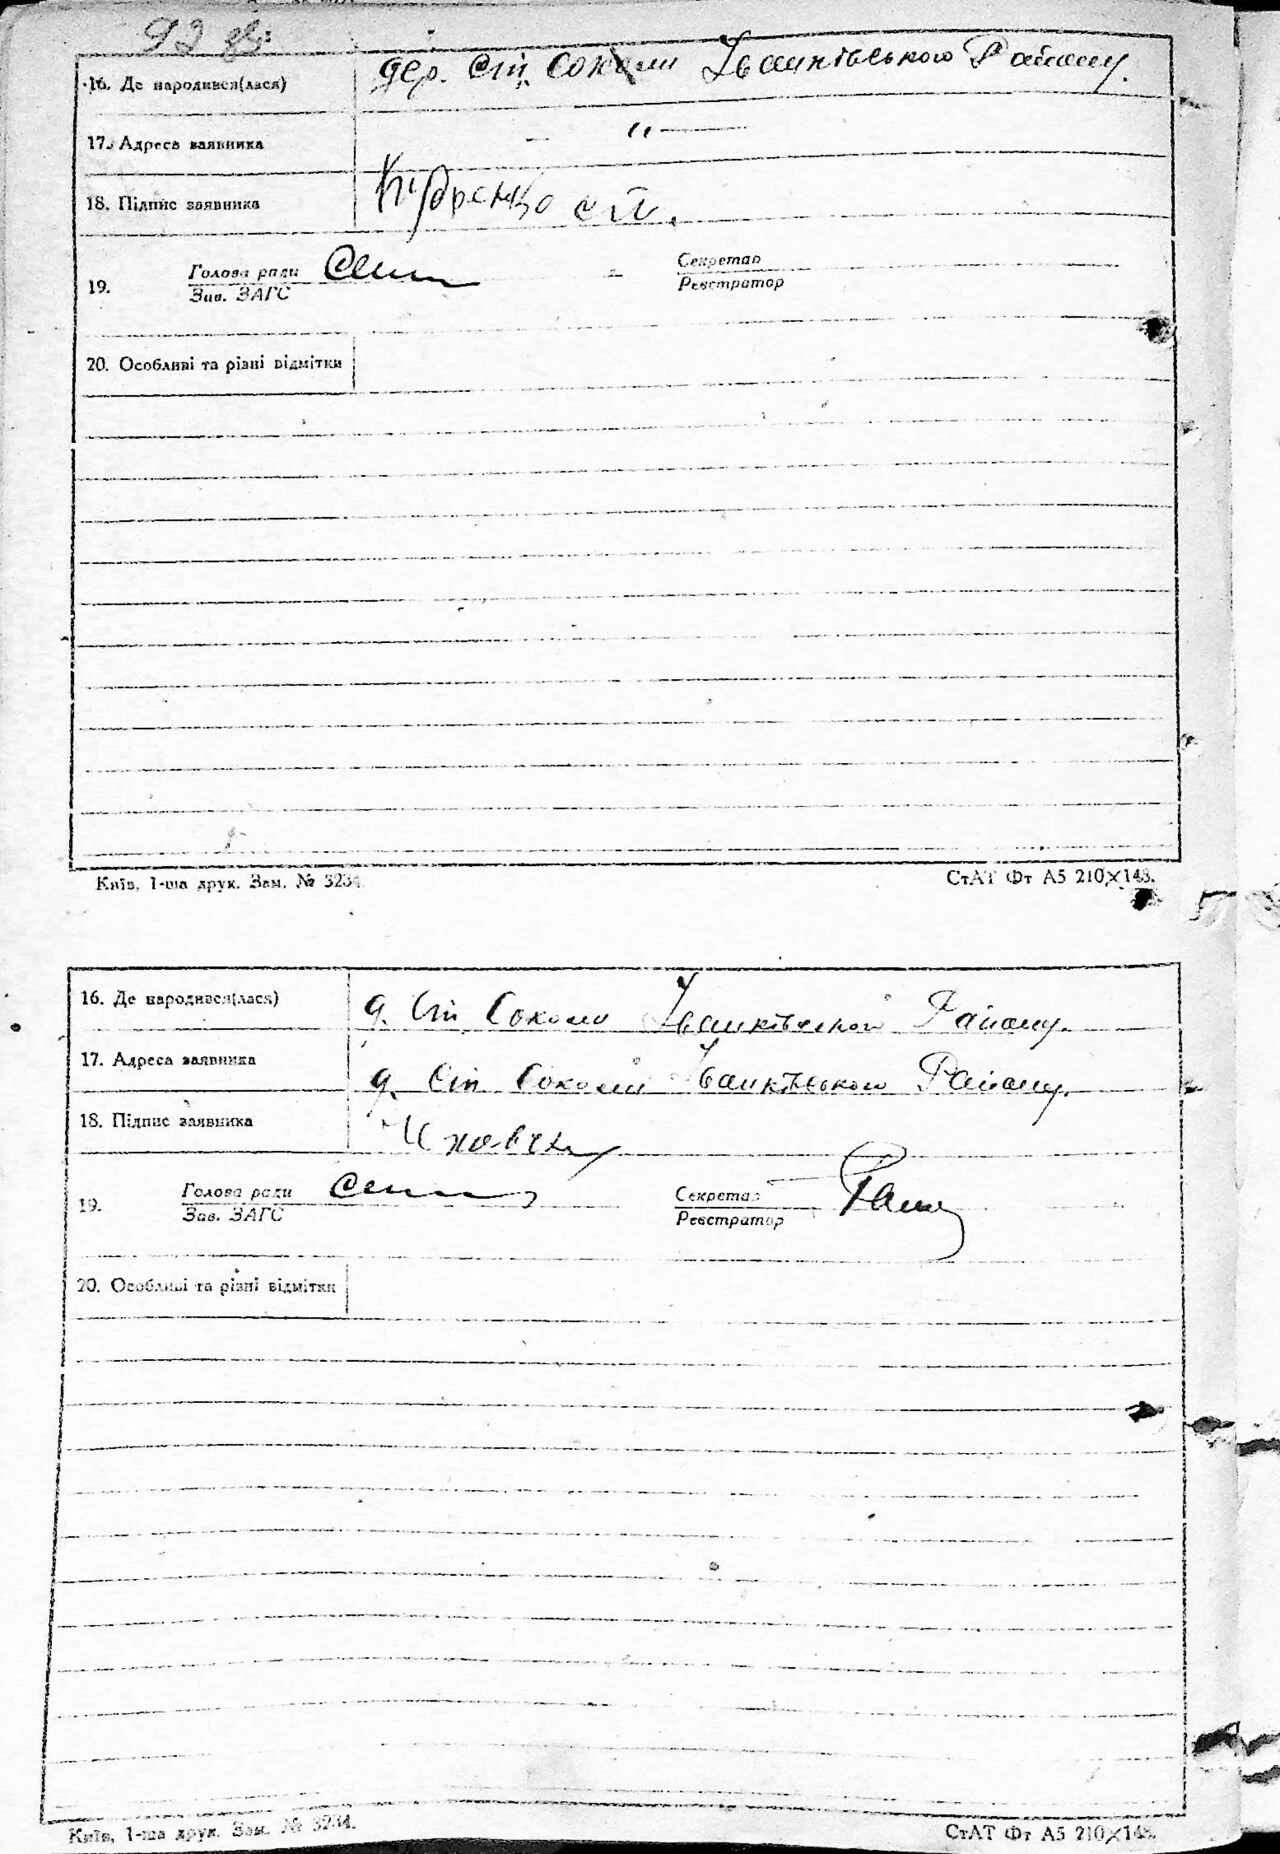 92 зв:
16. Де народився(лася) дер. Ст. Соколи Іванківського Району.
17. Адреса заявника — " —
18. Підпис заявника Кудренко
19. Голова ради
Зав. ЗАГС
Секретар
Реєстратор
20. Особливі та різні відмітки
Київ, 1-ша друк. Зам. № 3234.
СтАТ Фт А5 210×148.
16. Де народився(лася) д. Ст. Соколи Іванківської Району.
17. Адреса заявника д. Ст. Соколи Іванківського Району.
18. Підпис заявника
19. Голова ради
Зав. ЗАГС
Секретар
Реєстратор
20. Особливі та різні відмітки
Київ, 1-ша друк. Зам. № 3234.
СтАТ Фт А5 210×148.